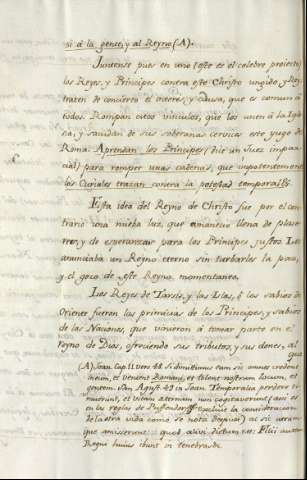 si á la gente, y al Reyno (A).
Juntense pues en uno (este es el celebre proiecto)
los Reyes, y Principes contra este Christo ungido, y Rey
traten de concierto el interes, y causa, que es comun á
todos. Rompan estos vinculos, que los unen á la Igle
sia, y sacudan de sus soberanas cervices este yugo de
Roma. Aprendan los Principes (dice un Juez impar
cial) para romper unas cadenas, que impotentemente
los Curiales trazan contra la potestad temporal.
Esta idea del Reyno de Christo fue por el con
trario una nueba luz, que amaneció llena de place
res, y de esperanzas para los Principes justos. Les
anunciaba un Reyno eterno sin turbarles la paz,
y el gozo de este Reyno momentaneo.
Los Reyes de Tarsis, y las Islas, ó los sabios de
Oriente fueron las primicias de los Principes, y sabios
de las Naciones, que vinieron á tomar parte en el
Reyno de Dios, ofreciendo sus tributos, y sus dones, al
que
(A) Joan Cap. 11 vers 48. Si dimittimus eum sic omnes credent
in eum, et venient Romani, et tolent nostrum locum, et
gentem. San Agust. in Joan Temporalia perdere ti
muerunt, et vitam aeternam non cogitaverunt (asi es
en las reglas de Puffendorf excluir la consideracion
de la otra vida como se nota despues) ac si
quod alivi dictum est: Filii autem
Regni huius ibunt in tenebras